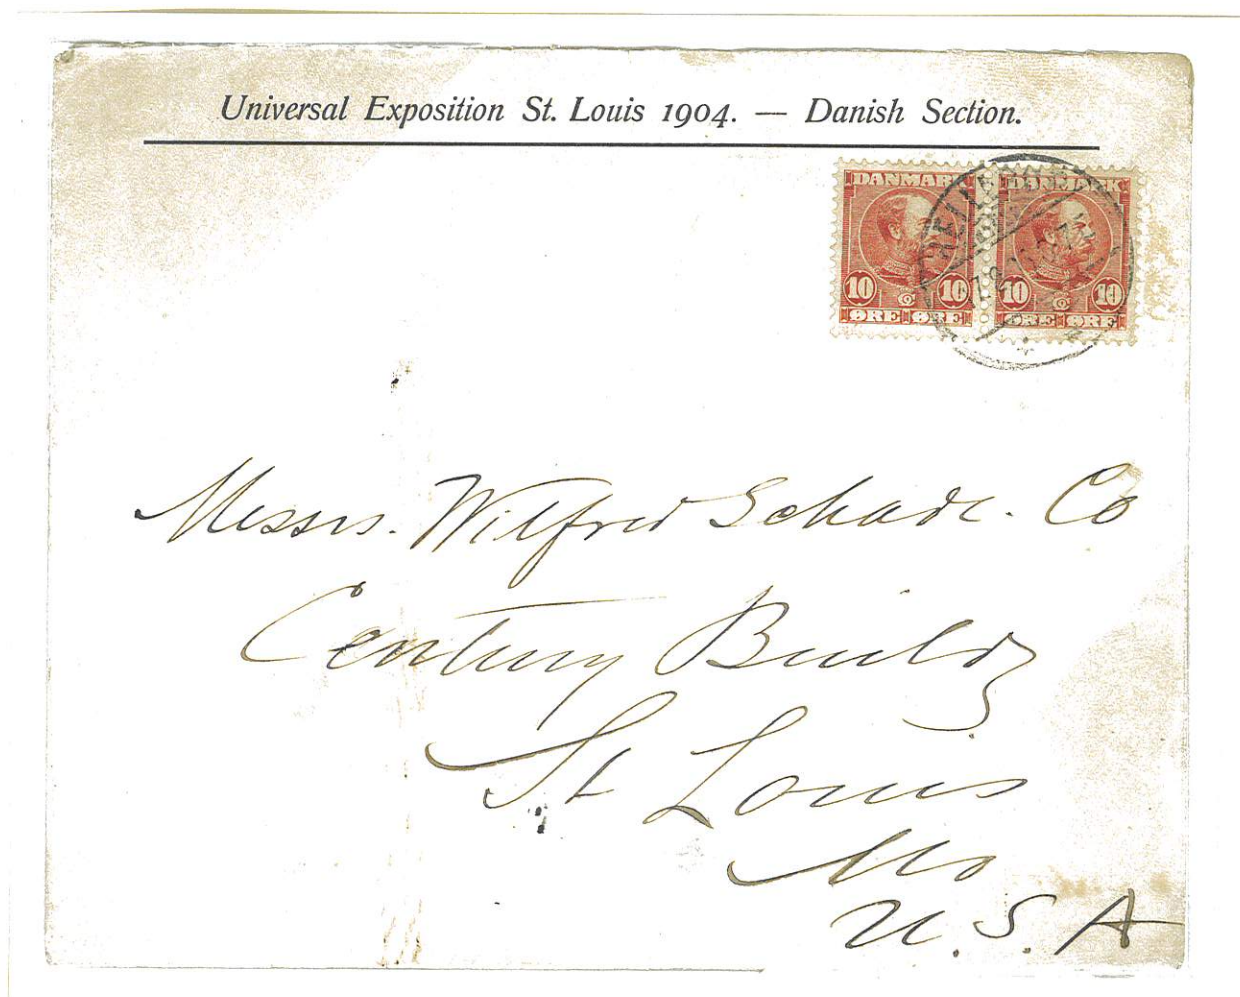 Universal Exposition St. Louis 1904. — Danish Section.
DANMARK DANMARK
10 10 10 10
ØRE ØRE ØRE ØRE
Messrs. Wilfred Schade. Co
Century Buildg
St Louis
Mo
U.S.A